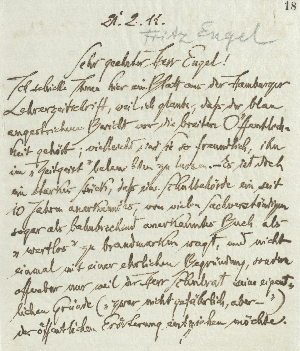 18
21.2.11.
Fritz Engel
Sehr geehrter Herr Engel!
Ich schicke Ihnen hier ein Blatt aus der Hamburger
Lehrerzeitschrift, weil ich glaube, dass der blau
angestrichene Bericht vor die breitere Öffentlich-
keit gehört; vielleicht sind Sie so freundlich, ihn
im "Zeitgeist" zu lassen. – Es ist doch
ein starkes Stück, dass eine Schulbehörde ein seit
10 Jahren anerkanntes, von vielen Sachverständigen
sogar als bahnbrechend anerkanntes Buch als
"wertlos" zu brandmarken wagt, und nicht
einmal mit einer ehrlichen Begründung, sondern
offenbar nur weil der Herr Schulrat seine eigent-
lichen Gründe ("zwar nicht gefährlich, aber –")
der öffentlichen Erörterung entziehen möchte.